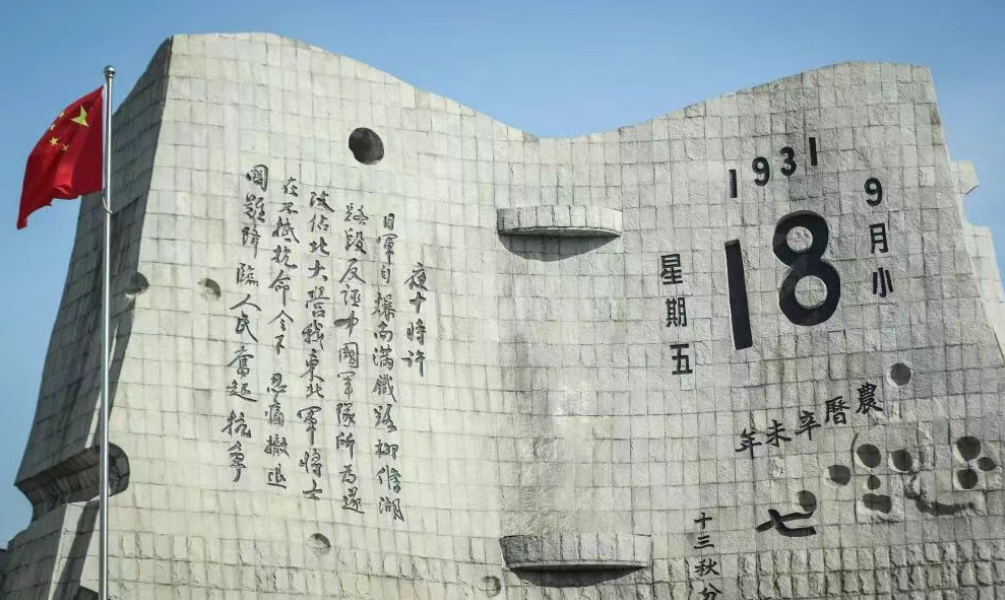 1931
9月小
18
星期五
農曆辛未年
七
十三秋分
夜十時许
日軍自爆南满鐵路柳條湖
路段反诬中國軍隊所为遂
攻佔北大营我東北軍将士
在不抵抗命令下忍痛撤退
國難降臨人民奮起抗争